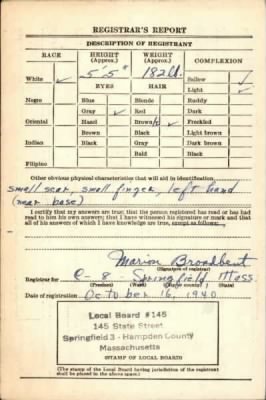 REGISTRAR'S REPORT
DESCRIPTION OF REGISTRANT
RACE HEIGHT (Approx.) WEIGHT (Approx.) COMPLEXION
5'5" 182
White ✓ EYES HAIR Sallow ✓
Light ✓
Negro Blue Blonde Ruddy
Gray ✓ Red Dark
Oriental Hazel Brown Freckled
Brown Black Light brown
Indian Black Gray Dark brown
Bald Black
Filipino
Other obvious physical characteristics that will aid in identification
small scar, small finger, left hand
(near base)
I certify that my answers are true; that the person registered has read or has had
read to him his own answers; that I have witnessed his signature or mark and that
all of his answers of which I have knowledge are true, except as follows:
Marion Broadbent
(Signature of registrar)
Registrar for C-8 Springfield Mass.
(Precinct) (Ward) (City or county) (State)
Date of registration October 16, 1940
Local Board #145
145 State Street
Springfield 3 - Hampden County
Massachusetts
STAMP OF LOCAL BOARD
(The stamp of the Local Board having jurisdiction of the registrant
shall be placed in the above space.)